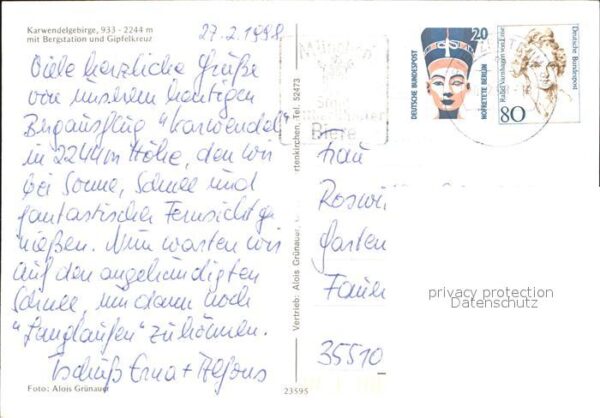 Karwendelgebirge, 933 - 2244 m
mit Bergstation und Gipfelkreuz
27.2.1998
Viele herzliche Grüße
von unserem heutigen
Bergausflug "Karwendel"
in 2244m Höhe, den wir
bei Sonne, Schnee und
fantastischer Fernsicht ge
nießen. Nun warten wir
auf den angekündigten
Schnee, um dann noch
"Langlaufen" zu können.
Tschüß Erna + Alfons
Foto: Alois Grünauer
Vertrieb: Alois Grünauer,
rtenkirchen, Tel. 52473
23595
München
Biere
20
DEUTSCHE BUNDESPOST
NOFRETETE BERLIN
80
Rahel Varnhagen von Ense
Deutsche Bundespost
Frau
Roswi
Garten
35510
privacy protection
Datenschutz